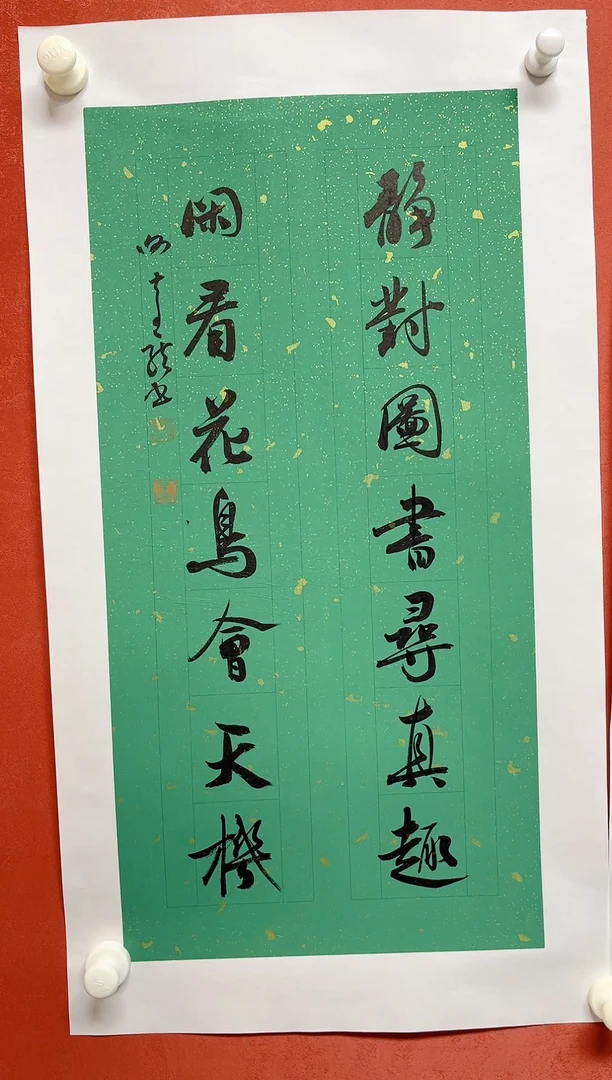 靜對圖書尋真趣
閑看花鳥會天機